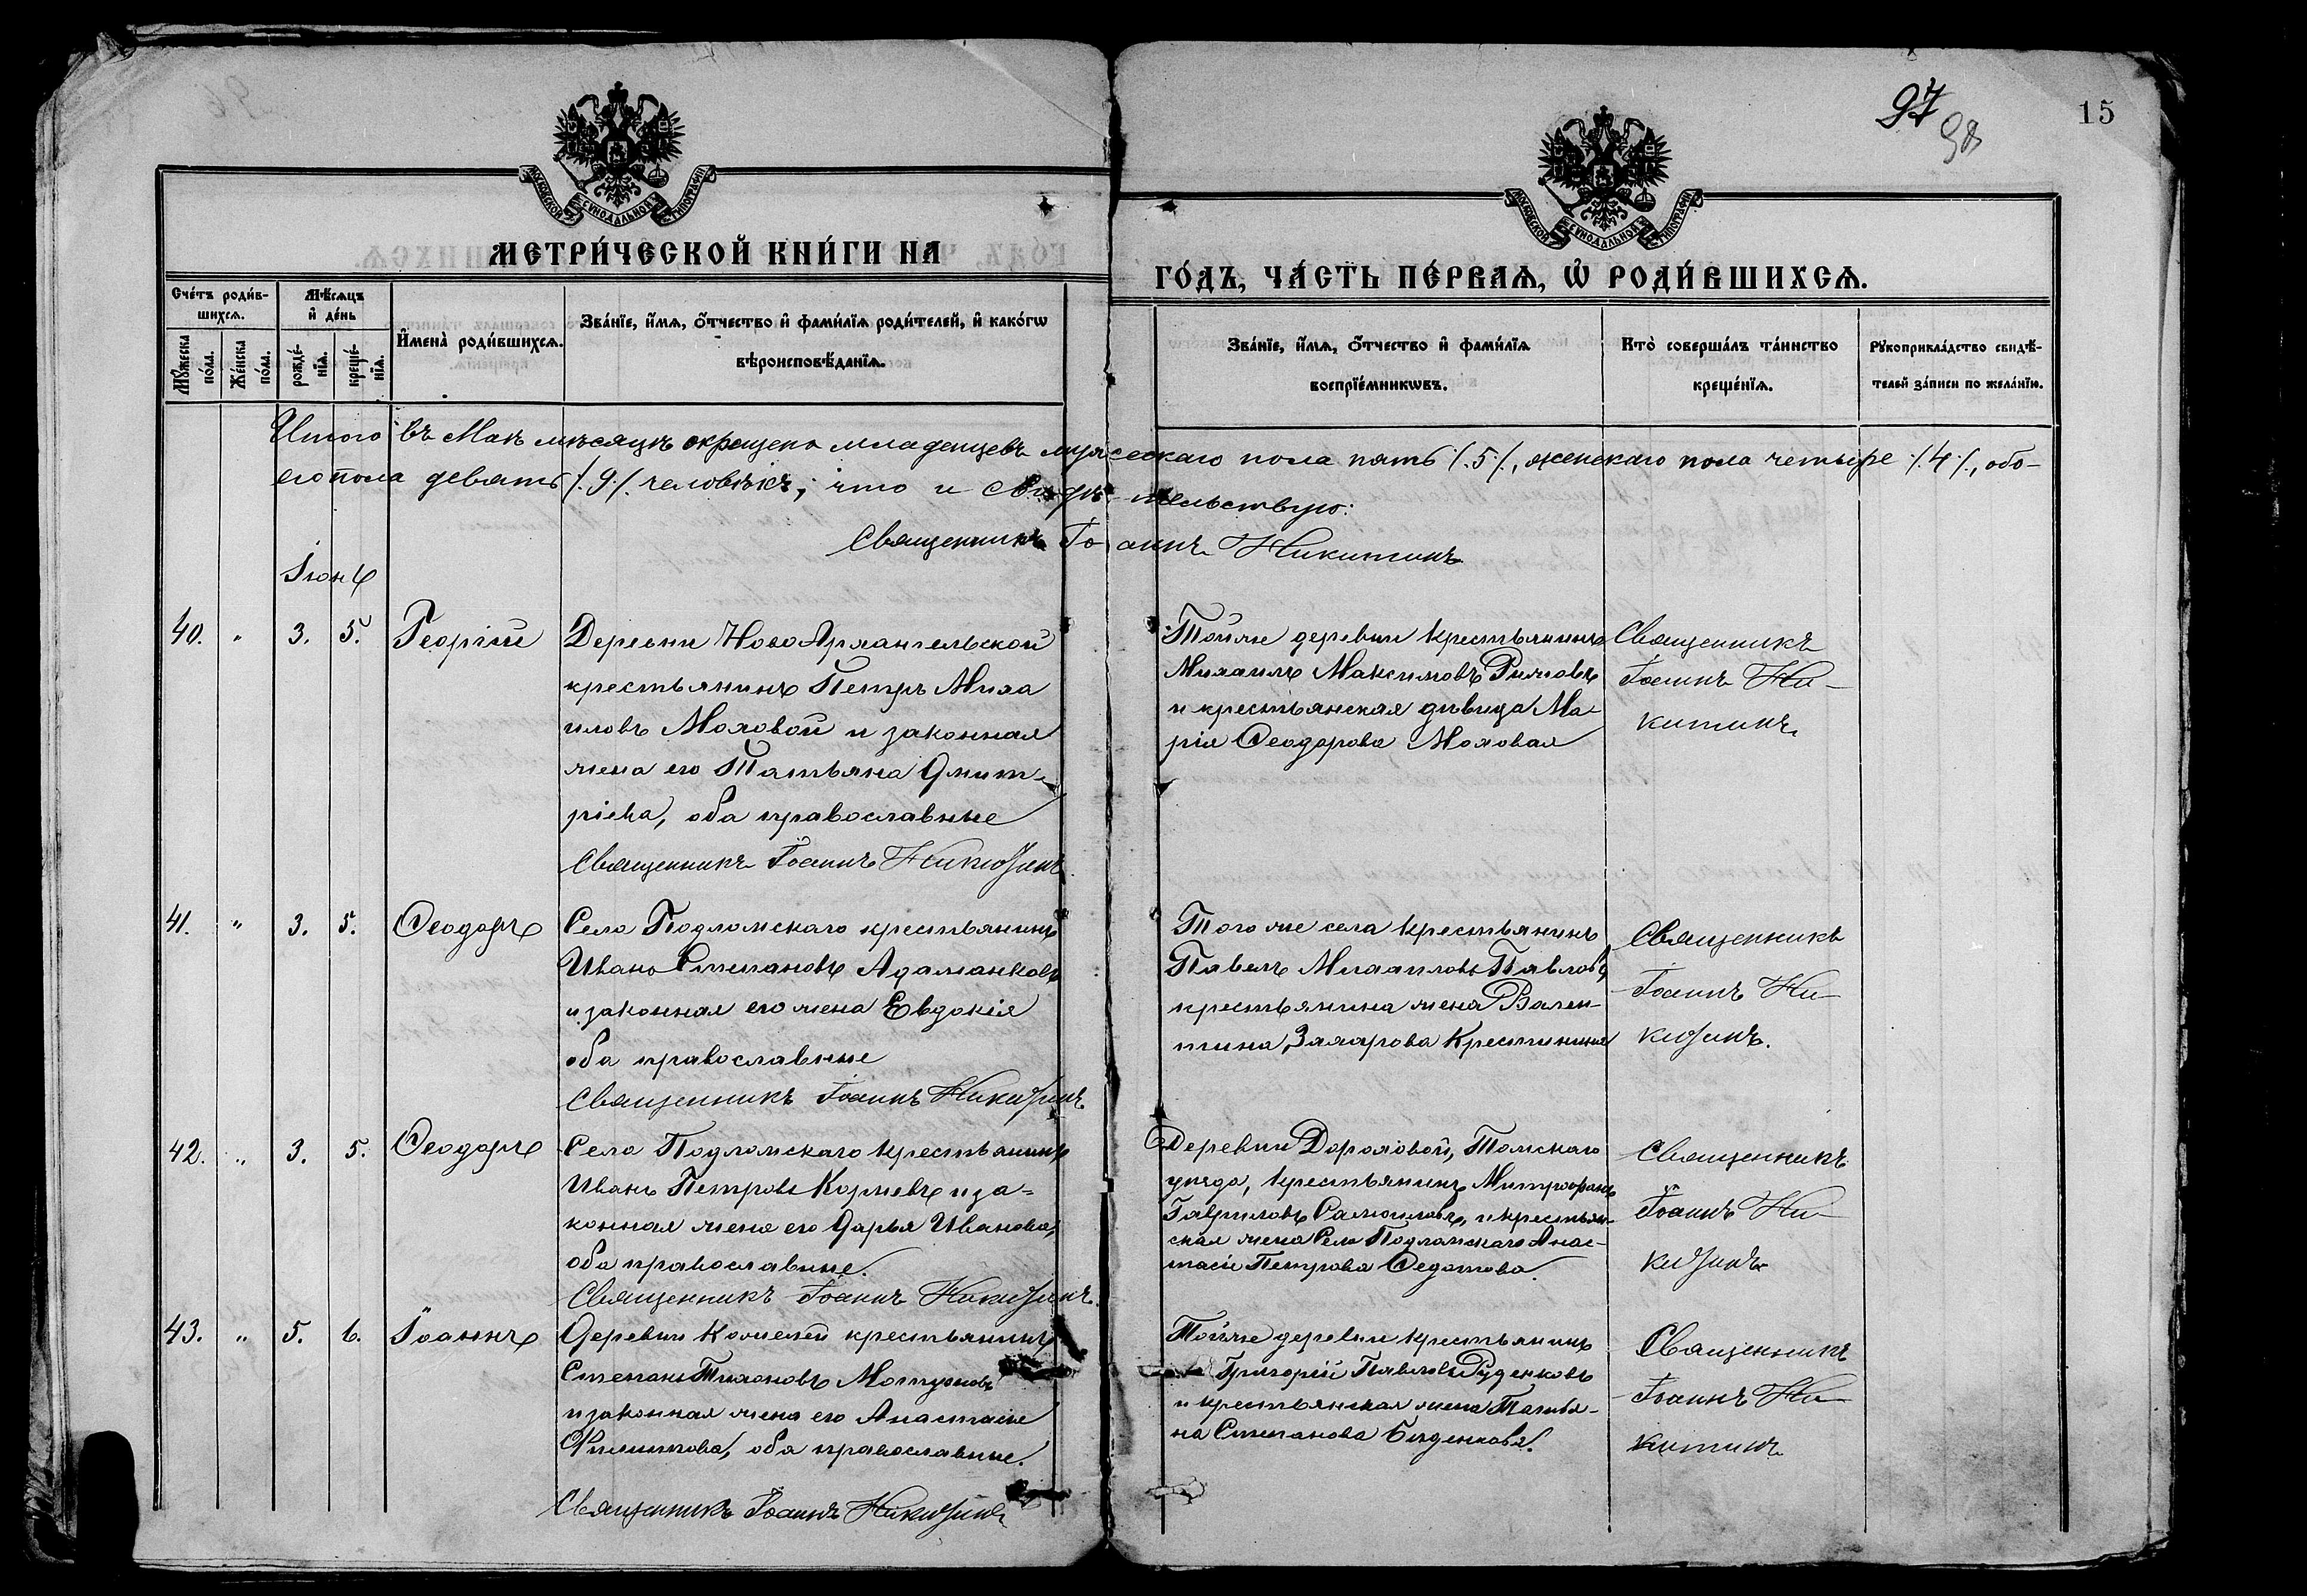 97
98
15
МОСКОВСКОЙ СѴНОДАЛЬНОЙ ТИПОГРАФІИ
МОСКОВСКОЙ СѴНОДАЛЬНОЙ ТИПОГРАФІИ
МЕТРИ́ЧЕСКОЙ КНИ́ГИ НА
ГО́ДЪ, ЧА́СТЬ ПЕ́РВАѦ, Ѽ РОДИ́ВШИХСѦ.
Сче́тъ роди́в-
шихсѧ.
Мꙋ́жеска по́ла.
Же́нска по́ла.
Мѣ́сѧцъ
и҆ де́нь
рожде́-нїѧ.
креще́-нїѧ.
И҆мена̀ роди́вшихсѧ.
Зва́нїе, и҆́мѧ, ѻ҆́тчество и҆ фами́лїѧ роди́телей, и҆ како́гѡ
вѣроисповѣ́данїѧ.
Зва́нїе, и҆́мѧ, ѻ҆́тчество и҆ фами́лїѧ
воспрїе́мникѡвъ.
Кто̀ соверша́лъ та́инство
креще́нїѧ.
Рꙋкоприкла́дство свидѣ́-
телей за́писи по жела́нїю.
Итого въ Маѣ мѣсяцѣ окрещено младенцевъ мужескаго пола пять /.5/., женскаго пола четыре /.4/., обо-
его пола девять /.9/. человѣкъ; что и свидѣтельствую:
Священникъ Іоаннъ Никитинъ
Іюнь
40. " 3. 5. Георгій
Деревни Ново Архангельской
крестьянинъ Петръ Миха
иловъ Моховой и законная
жена его Татьяна Дмит-
ріева, оба православные
Священникъ Іоаннъ Никитинъ
Тойже деревни крестьянинъ
Михаилъ Максимовъ
и крестьянская дѣвица Ма-
рія Ѳеодорова Моховая
Священникъ
Іоаннъ Ни-
китинъ
41. " 3. 5. Ѳеодоръ
Села Подломскаго крестьянинъ
Иванъ Степановъ Адаманковъ
и законная его жена Евдокія
оба православные
Священникъ Іоаннъ Никитинъ
Того же села крестьянинъ
Павелъ Михаиловъ Павловъ,
крестьянина жена Вален-
тина, Захарова
Священникъ
Іоаннъ Ни-
китинъ.
42. " 3. 5. Ѳеодоръ
Села Подломскаго крестьянинъ
Иванъ Петровъ и за-
конная жена его Дарья Иванова,
оба православные.
Священникъ Іоаннъ Никитинъ.
Деревни Дороховой, Томскаго
уѣзда, крестьянинъ Митрофанъ
Гавриловъ Самойловъ, и крестьян-
ская жена Села Подломскаго Анас-
тасія Петрова Ѳедотова.
Священникъ
Іоаннъ Ни-
китинъ
43. " 5. 6. Іоаннъ
Деревни крестьянинъ
Степанъ Тихоновъ
и законная жена его Анастасія
Филиппова, оба православные.
Священникъ Іоаннъ Никитинъ
Тойже деревни крестьянинъ
Григорій Павловъ Руденковъ
и крестьянская жена Татья-
на Степанова
Священникъ
Іоаннъ Ни-
китинъ